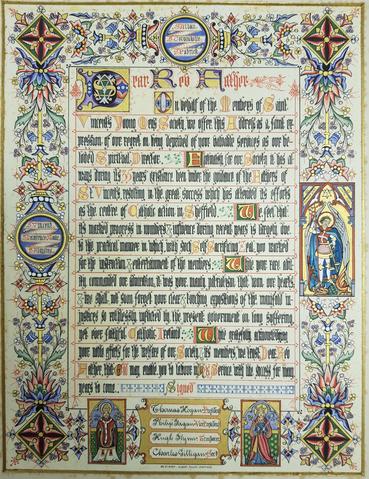 Dear Rev Father
On behalf of the Members of Saint
Vincent's Young Men's Society, we offer this Address as a faint ex-
pression of our regret on being deprived of your valuable services as our be-
loved Spiritual Director. Fortunately for our Society it has al-
ways during its years existence been under the guidance of the Fathers of
St. Vincent's, resulting in the great success which has attended its efforts
as the centre of Catholic action in Sheffield. We feel that
its marked progress in numbers & influence during recent years is largely due
to the practical manner in which, with such self sacrificing zeal, you worked
for the instruction & entertainment of the members. While your rare abil-
ity commanded our admiration, it was your manly patriotism that won our hearts
& we shall not soon forget your clear & touching expositions of the manifold in-
justices so ruthlessly inflicted by the present government on long suffering
yet ever faithful Catholic Ireland. While gratefully acknowledging
your noble efforts for the welfare of our Society, its members we trust Dear Rev
Father, that God may enable you to labour in His Service with like success for many
years to come. Signed
Thomas Hogan President
Philip Fagan Vice President
Hugh Flynn Treasurer
Charles Gilligan Sec